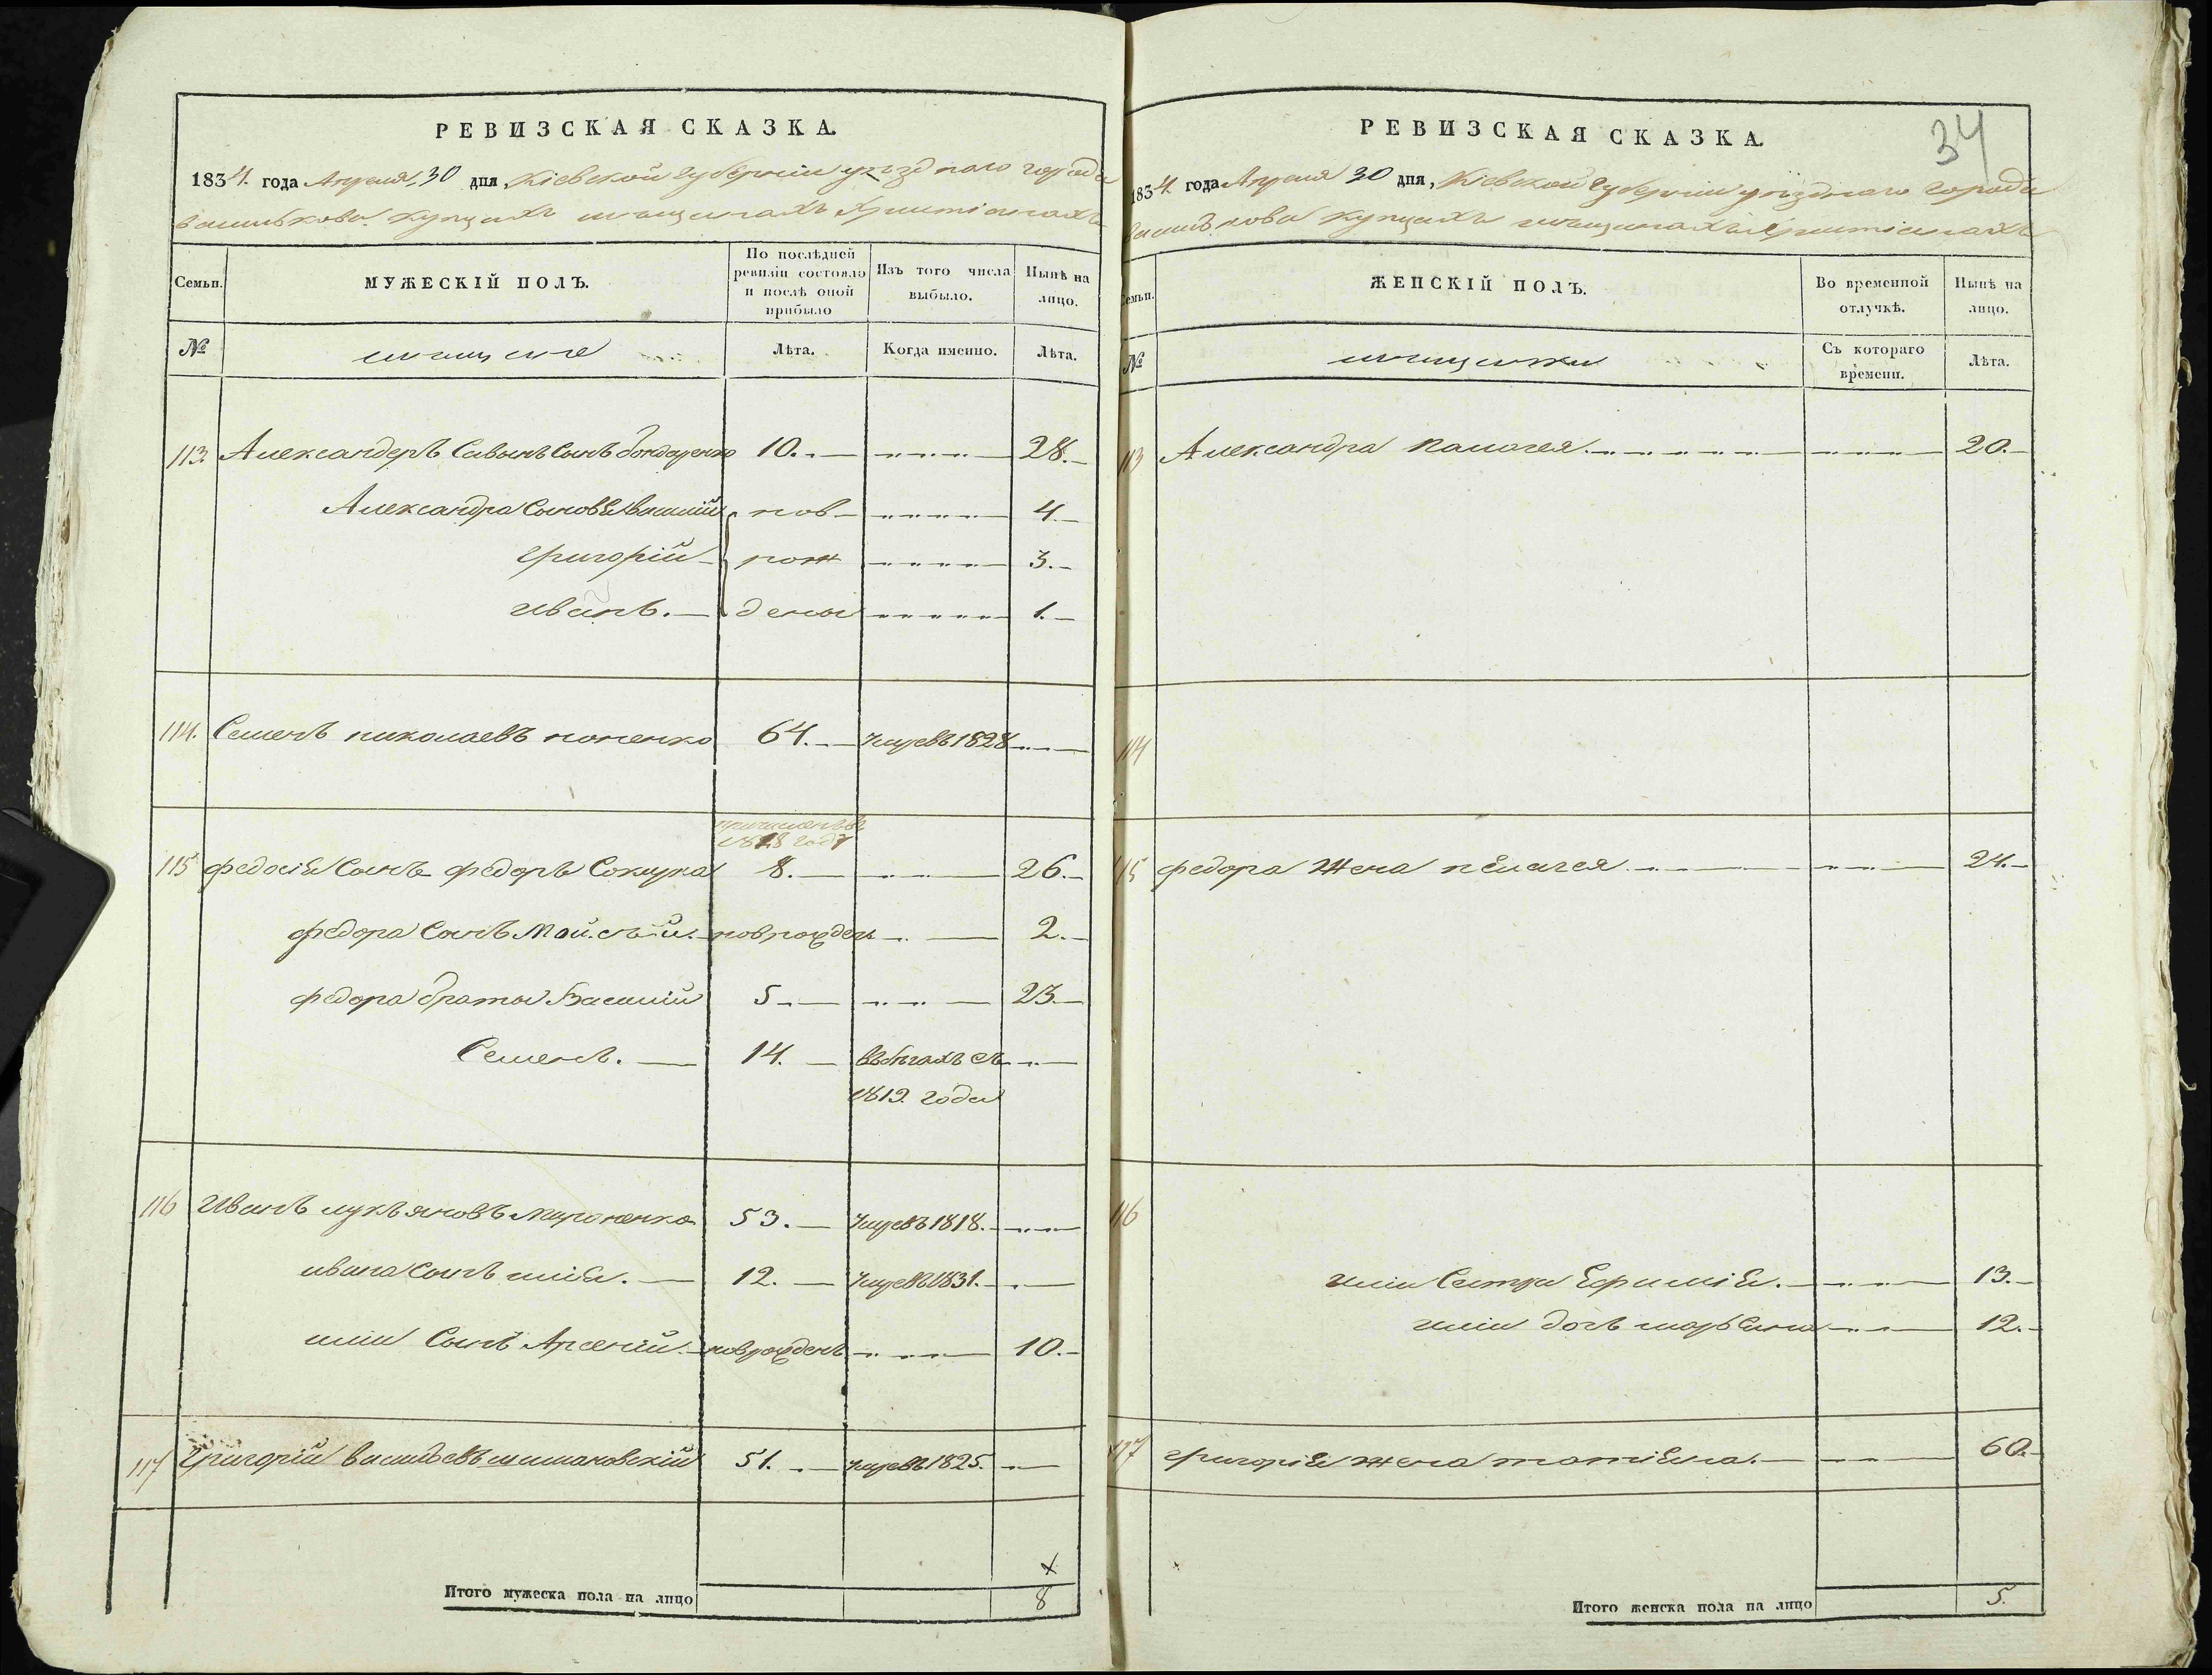 РЕВИЗСКАЯ СКАЗКА.
1834. года Апреля, 30 дня Кіевской Губерніи уѣзднаго города
василькова купцахъ мѣщанахъ христіанахъ
Семьи.
МУЖЕСКІЙ ПОЛЪ.
По послѣдней ревизіи состояло и послѣ оной прибыло
Изъ того числа выбыло.
Нынѣ на лицо.
№
мѣщане
Лѣта.
Когда именно.
Лѣта.
113. Александеръ Савинъ Сынъ бондаренко 10. 28.
Александра Сыновъя василій нов 4.
григорій рож 3.
иванъ. дены 1.
114. Семенъ николаевъ попенко 64. умревъ 1828
причисленъ въ
1818 году
115 федосія Сынъ федоръ Сокура 8. 26.
федора Сынъ Мойсей. новрожден 2.
федора братья Василій 5 23.
Семенъ. 14. въ бѣгахъ съ
1819 года
116 Иванъ лукъяновъ мироненко 53. умревъ 1818.
ивана Сынъ илія. 12. умревъ 1831.
иліи Сынъ Арсеній. новрожденъ 10.
117 Григорій васильевъ шимановскій 51. умревъ 1825.
Итого мужеска пола на лицо 8
РЕВИЗСКАЯ СКАЗКА.
34
1834 года Апреля 30 дня, Кіевской Губерніи уѣзднаго города
василькова купцахъ мѣщанахъ христіанахъ
Семьи.
ЖЕНСКІЙ ПОЛЪ.
Во временной отлучкѣ.
Нынѣ на лицо.
№
мѣщанки
Съ котораго времени.
Лѣта.
113 Александра 20.
114
115 федора жена пелагея 24.
116
иліи Сестра Ефимія. 13.
иліи дочъ 12.
117 григорія жена татіяна. 60.
Итого женска пола на лицо 5.